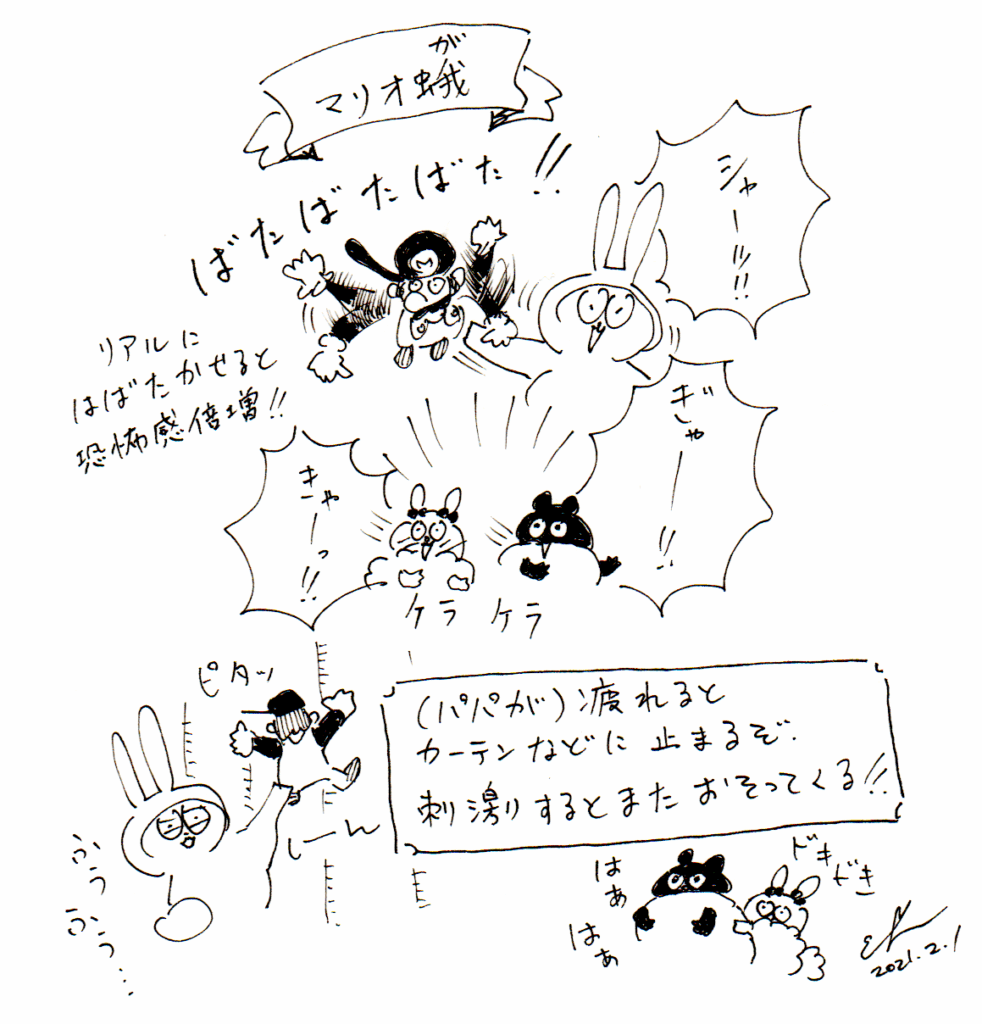 が
マリオ蛾
ばたばたばた!!
シャーッ!!
リアルに
はばたかせると
恐怖感倍増!!
ぎゃーー!!
きゃーっ!!
ケラ ケラ
ピタッ
(パパが)疲れると
カーテンなどに止まるぞ.
刺激するとまたおそってくる!!
しーん
ふぅ
ふぅ…
はぁ
はぁ
ドキ
ドキ
2021.2.1